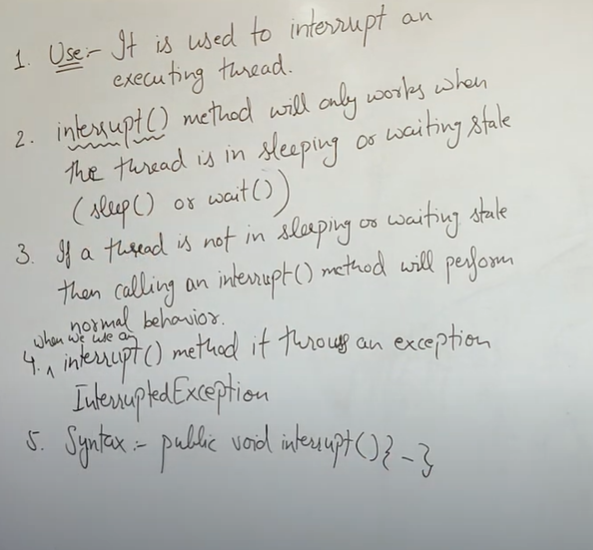 1. Use:- It is used to interrupt an
executing thread.
2. interrupt() method will only works when
the thread is in sleeping or waiting state
(sleep() or wait())
3. If a thread is not in sleeping or waiting state
then calling an interrupt() method will perform
normal behavior.
when we use an
4. ^ interrupt() method it throws an exception
InterruptedException
5. Syntax :- public void interrupt(){ - }